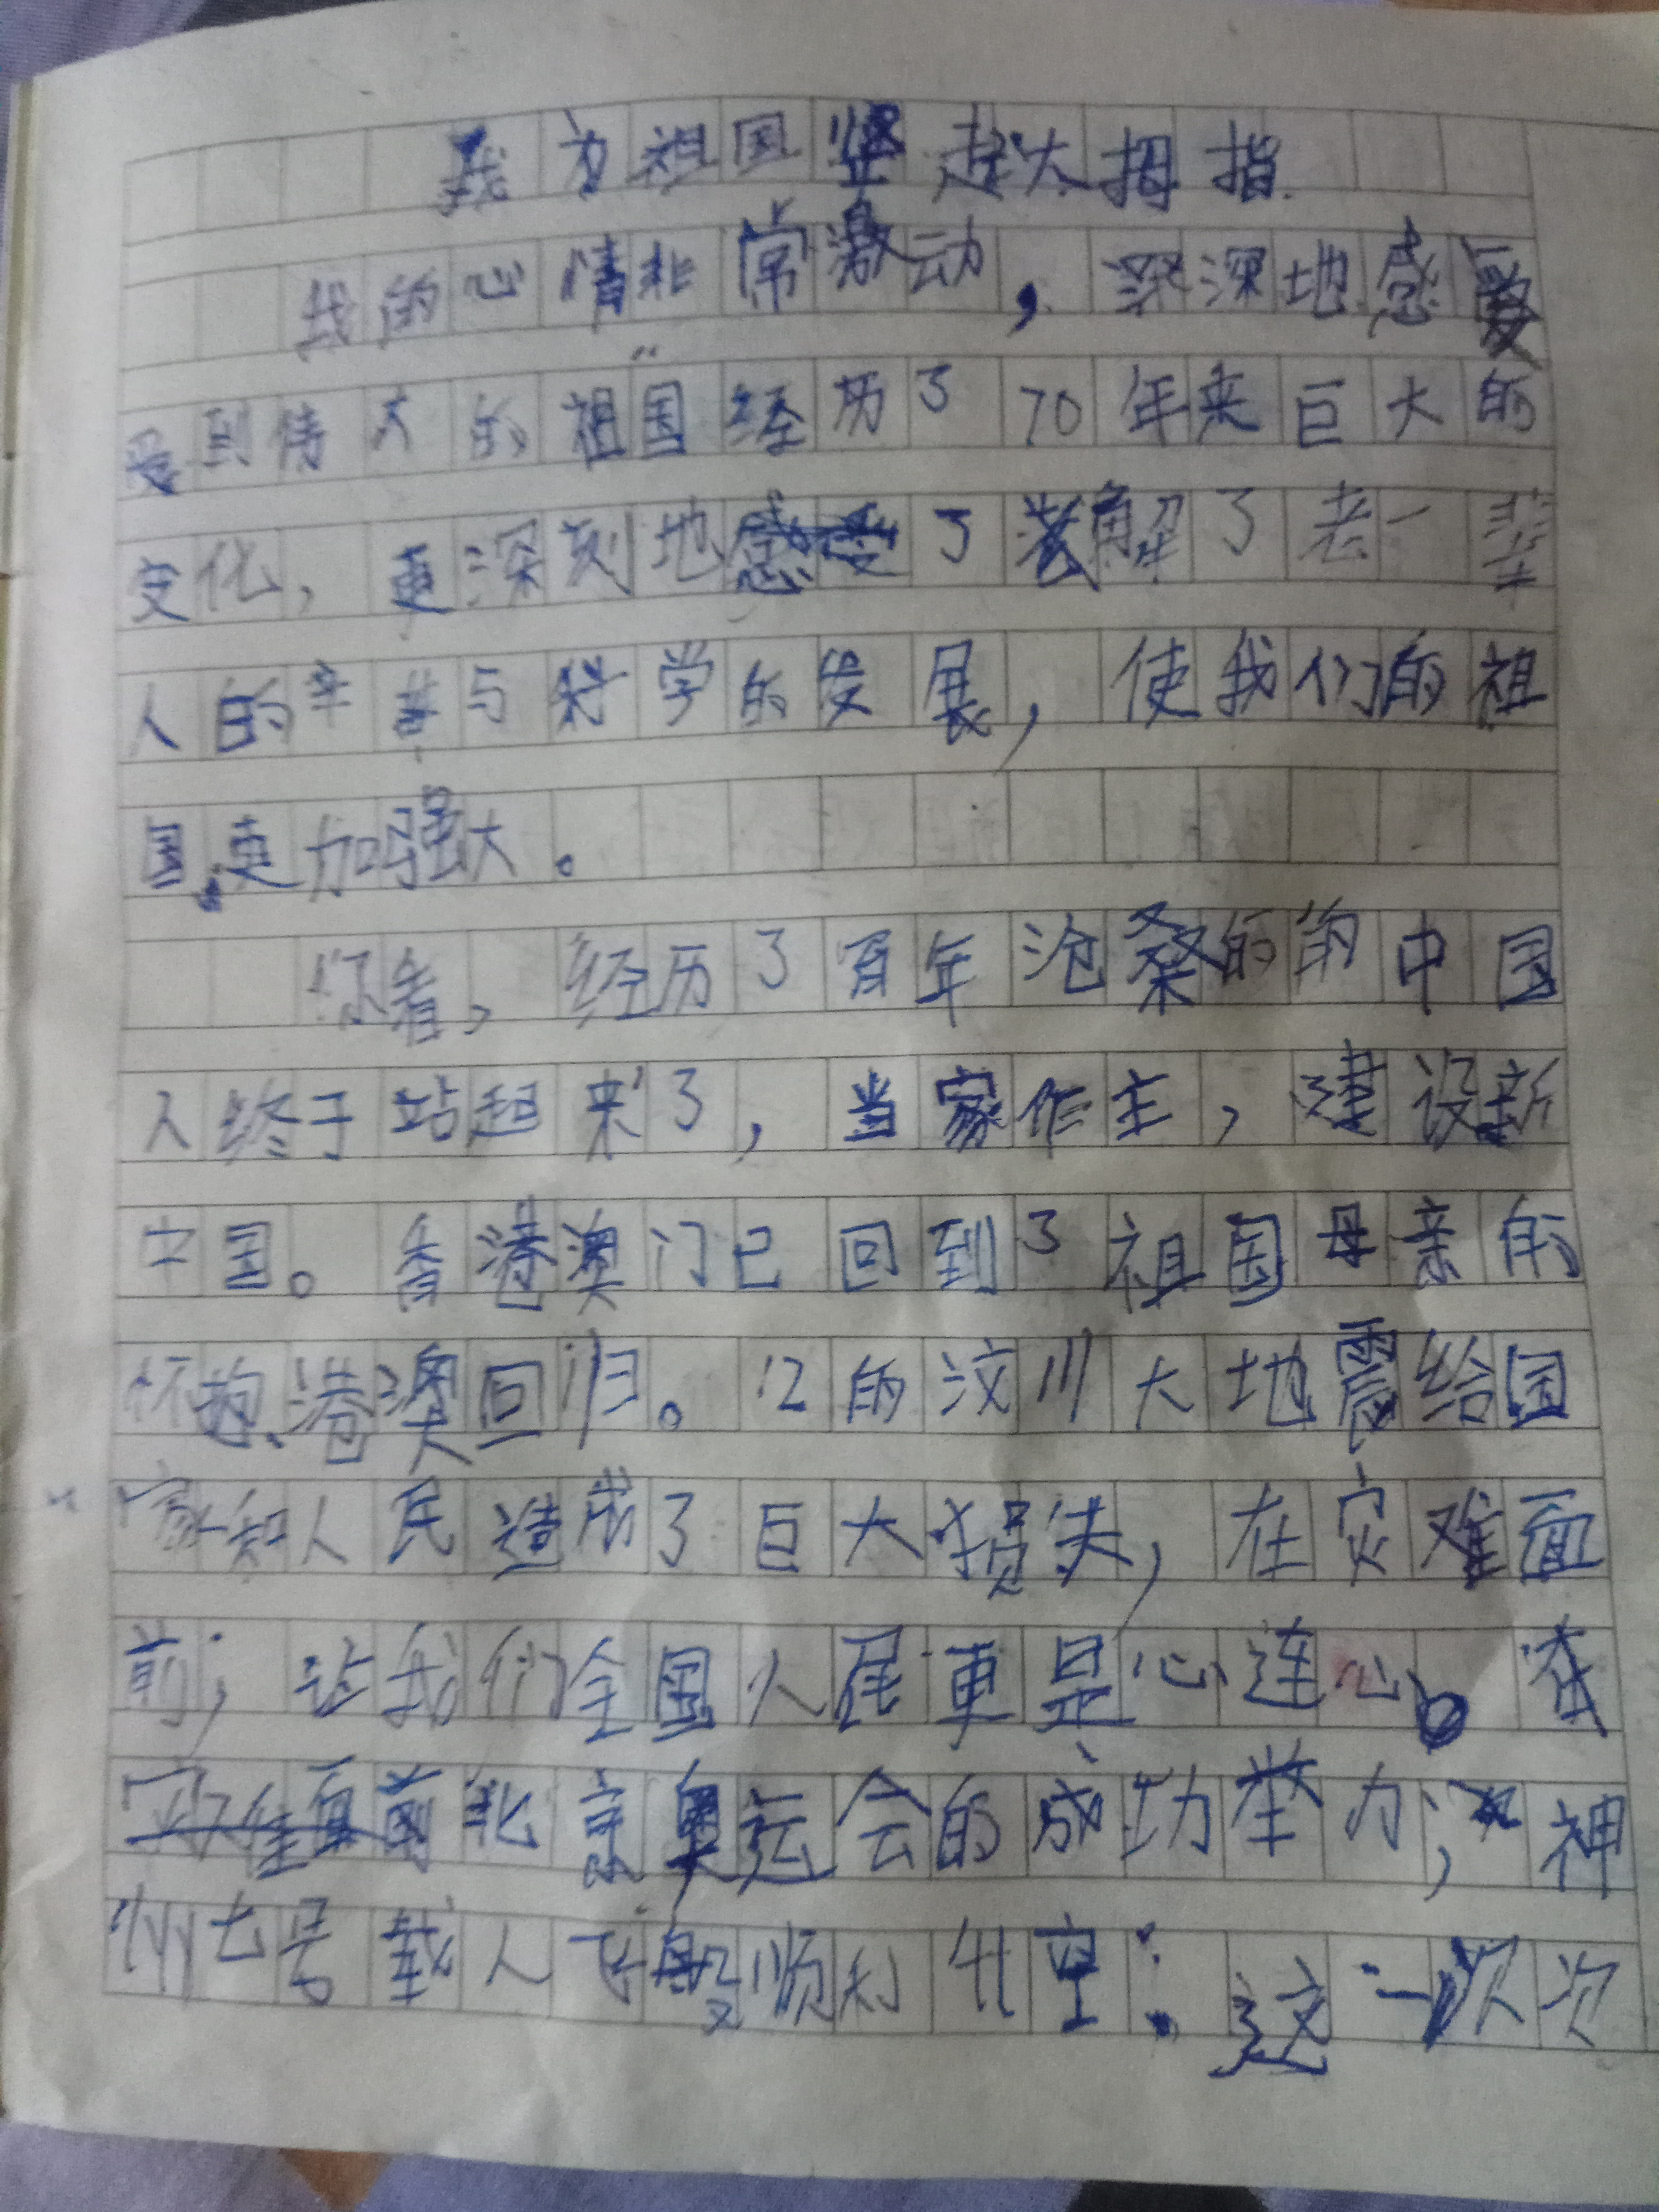 我为祖国竖起大拇指
我的心情非常激动，深深地感
受到伟大的祖国经历了70年来巨大的
变化，更深刻地感受了解了老一辈
人的辛苦与科学的发展，使我们的祖
国更加强大。
你看，经历了百年沧桑的的中国
人终于站起来了，当家作主，建设新
中国。香港澳门已回到了祖国母亲的
怀抱、港澳回归。12的汶川大地震给国
家和人民造成了巨大损失，在灾难面
前；让我们全国人民更是心连心。在
北京奥运会的成功举办；神
州七号载人飞船顺利升空：这一次次